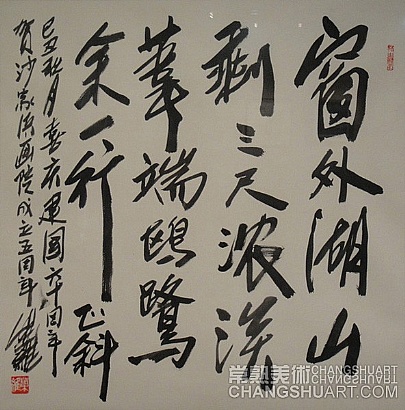 窗外湖山
剩三尺浓淡
筆端鷗鷺
余一行正斜
己丑秋月喜庆建国六十周年
贺沙家浜画院成立五周年
常熟美術 CHANGSHUART